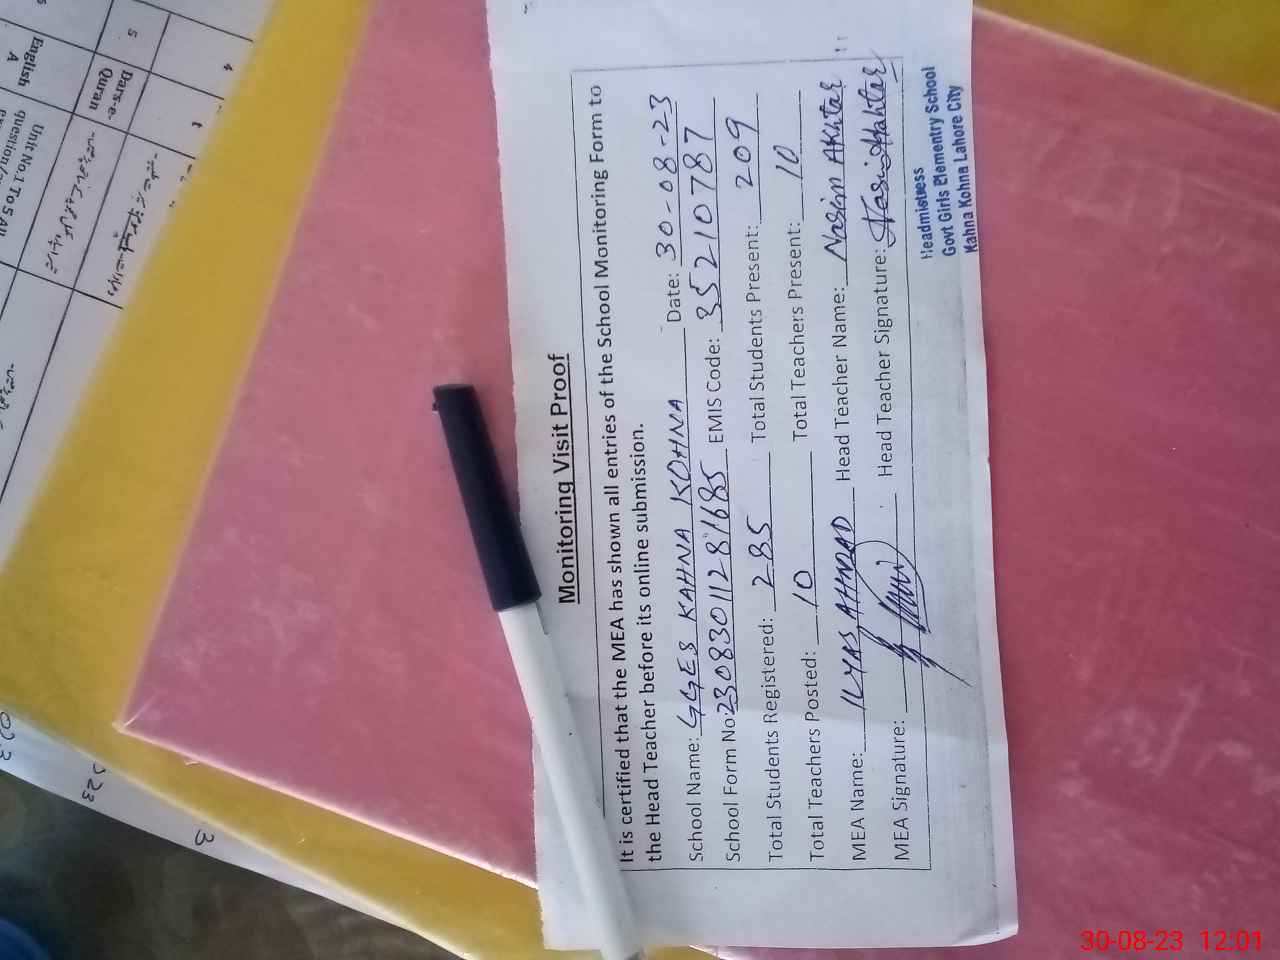 Monitoring Visit Proof
It is certified that the MEA has shown all entries of the School Monitoring Form to
the Head Teacher before its online submission.
School Name: GGES KAHNA KOHNA Date: 30-08-23
School Form No: 23083011281685 EMIS Code: 35210787
Total Students Registered: 285 Total Students Present: 209
Total Teachers Posted: 10 Total Teachers Present: 10
MEA Name: ILYAS AHMAD Head Teacher Name: Nasim Akhtar
MEA Signature: Head Teacher Signature: Nasim Akhtar
Headmistress
Govt Girls Elementry School
Kahna Kohna Lahore City
4
5 Dars-e-
Quran
English
A
Unit No.1 To 5 All
30-08-23 12:01